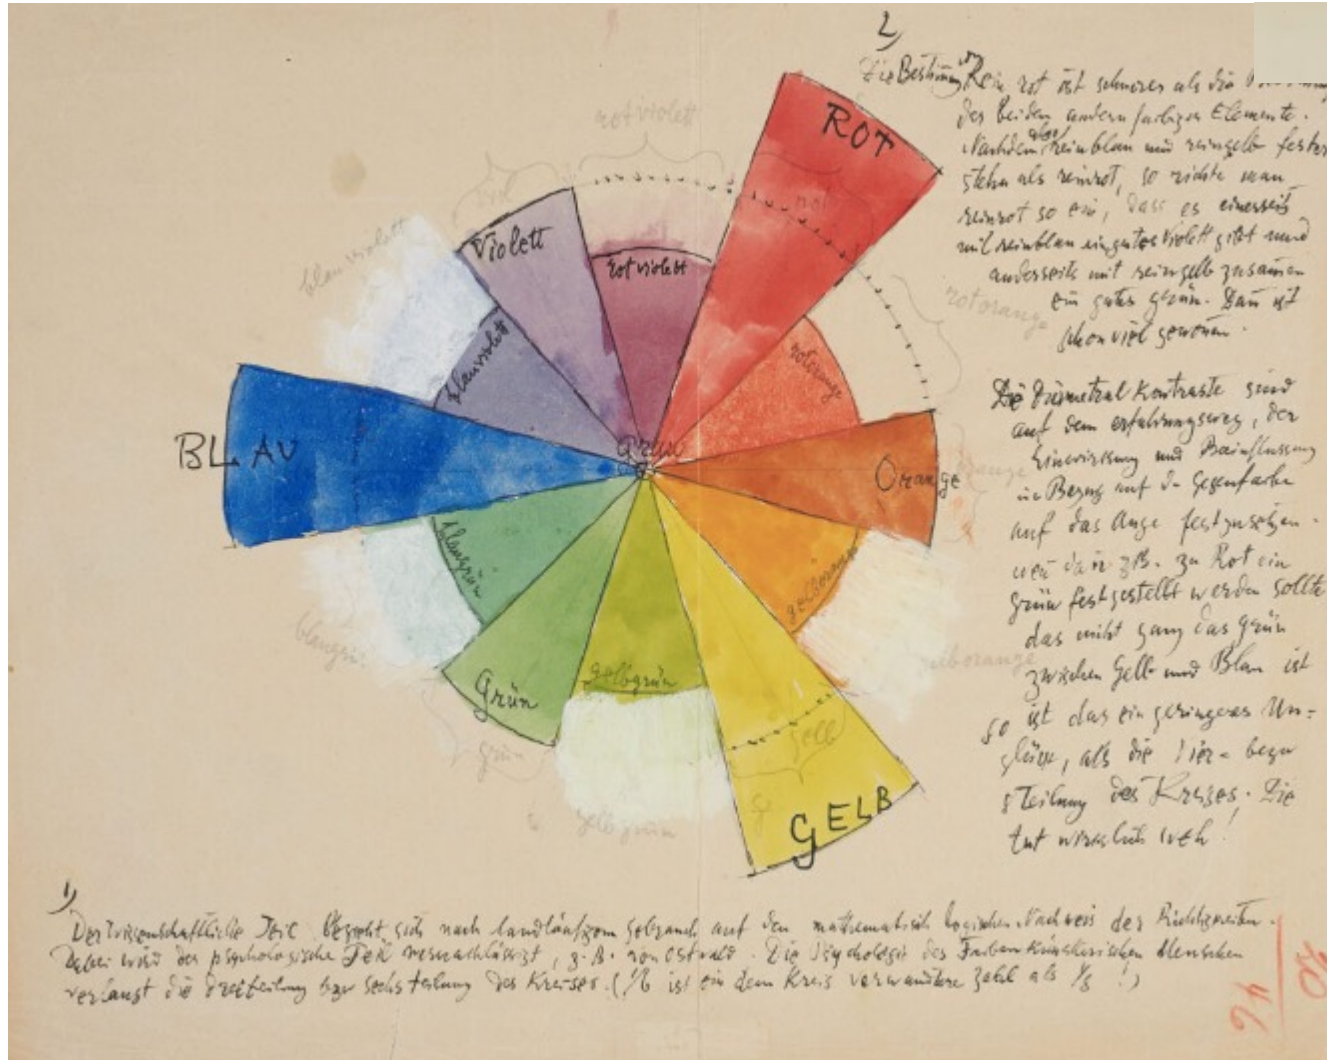 2)
Die Bestimmg von Rein rot ist schwerer als die
der beiden andern farbigen Elemente.
Nachdem aber reinblau und reingelb fester
stehn als reinrot, so richte man
reinrot so ein, dass es einerseits
mit reinblau ein gutes Violett gibt und
anderseits mit reingelb zusamen
ein gutes
schon viel gewonen.
Die Diametral Kontraste sind
auf dem erfahrungsweg, der
Einwirkung und Beinflussung
in Bezug auf die Gegenfarbe
auf das Auge festzusetzen.
zB. zu Rot ein
grün festgestellt werden sollte
das nicht ganz das grün
zwischen Gelb und Blau ist
so ist das ein geringeres Un=
glück, als die Vier- bezw
8 Teilung des Kreises. Die
tut wirklich weh!
rotviolett
ROT
rot
viol
Violett
rotviolett
blauviolett
blauviolett
rotorange
rotorange
BLAU
Grau
Orange
orange
blaugrün
gelborange
gelborange
blaugrü
Grün
gelbgrün
grün
gelb
gelbgrün
GELB
1)
Der wissenschaftliche Teil bezieht sich nach landläufigem gebrauch auf den mathematisch logischen Nachweis der Richtigkeiten.
Dabei wird der psychologische Teil vernachlässigt, z.B. von Ostwald. Die Psychologie des Farben künstlerischen Menschen
verlangt die Dreiteilung bzw sechsteilung des Kreises. (1/6 ist ein dem Kreis verwandtere zahl als 1/8 !)